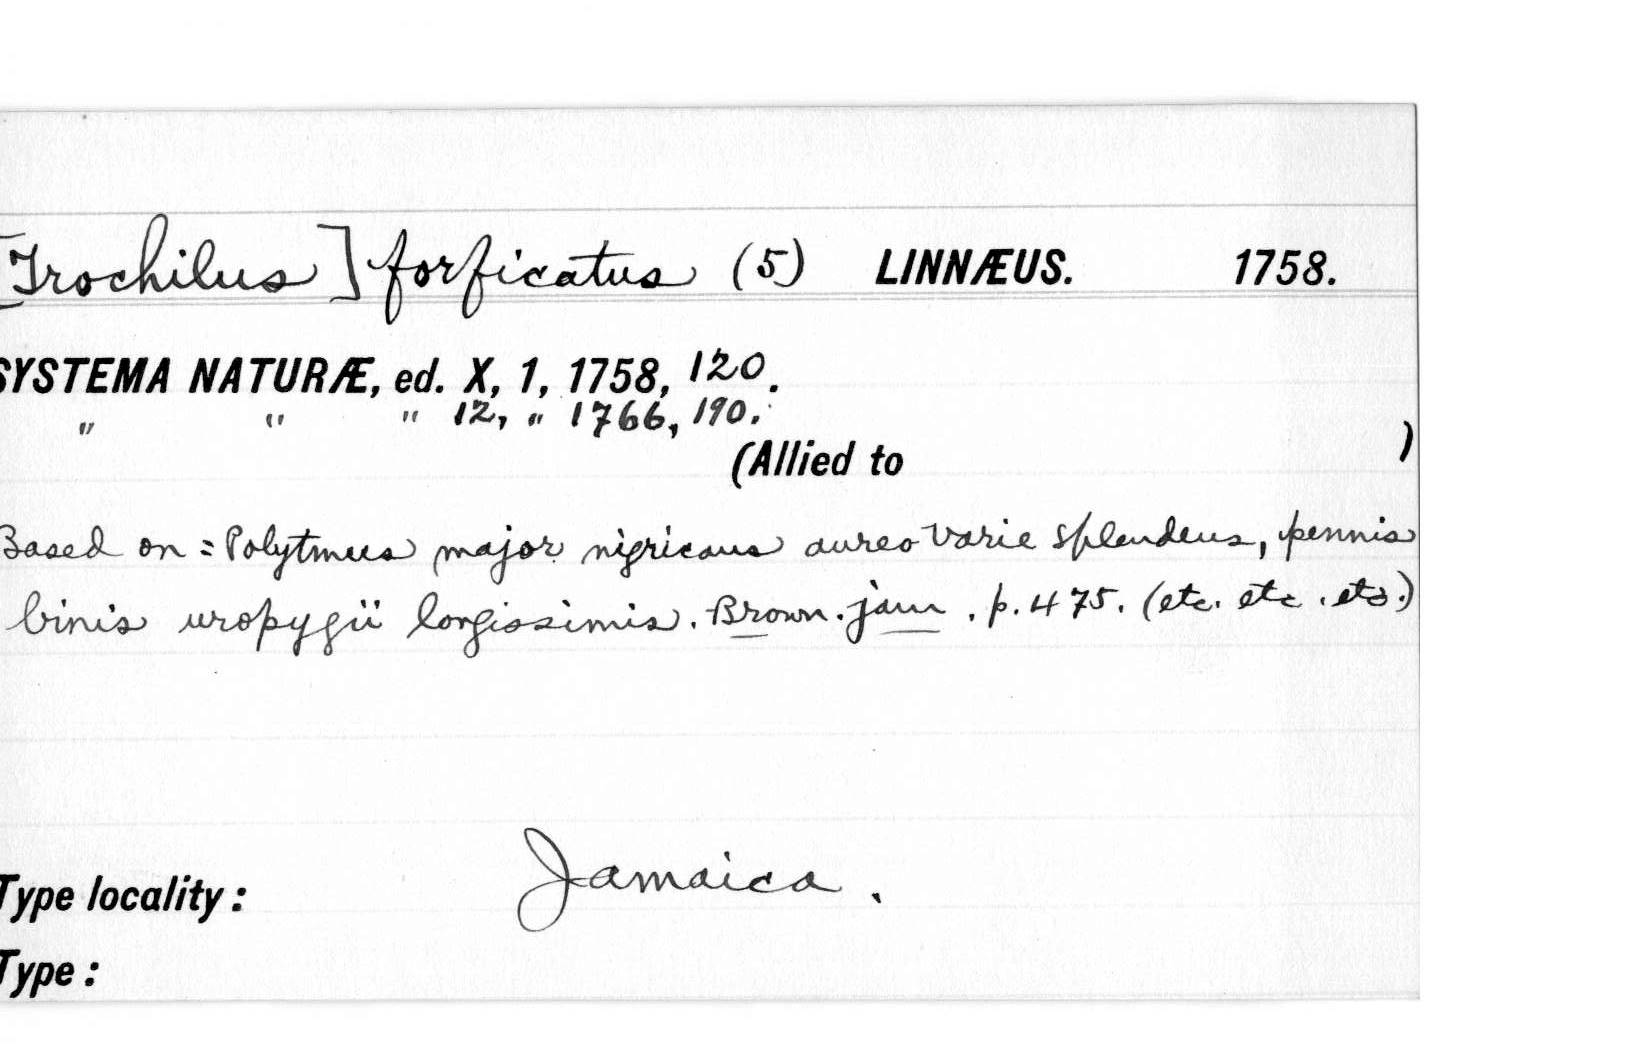 [Trochilus] forficatus (5) LINNÆUS. 1758.
SYSTEMA NATURÆ, ed. X, 1, 1758, 120.
" " " 12, " 1766, 190.
(Allied to )
Based on = Polytmus major nigricans aureo varie splendens, pennis
binis uropygii longissimis. Brown. jam. p. 475. (etc. etc. etc.)
Type locality: Jamaica.
Type: